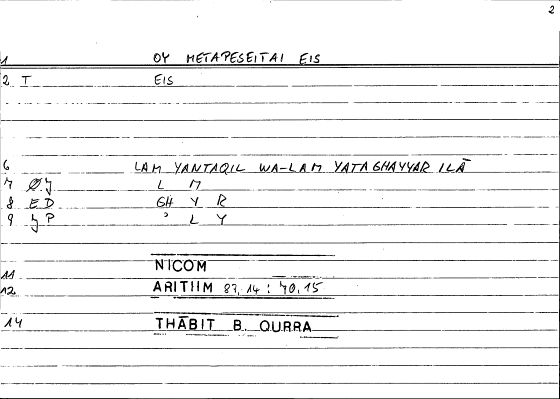 2
1 OY METAPESEITAI EIS
2 T EIS
6 LAM YANTAQIL WA-LAM YATAGHAYYAR ILĀ
7 L M
8 ED GH Y R
9 P ʾ L Y
11 NICOM
12 ARITIIM 83,14 : 40,15
14 THĀBIT B. QURRA